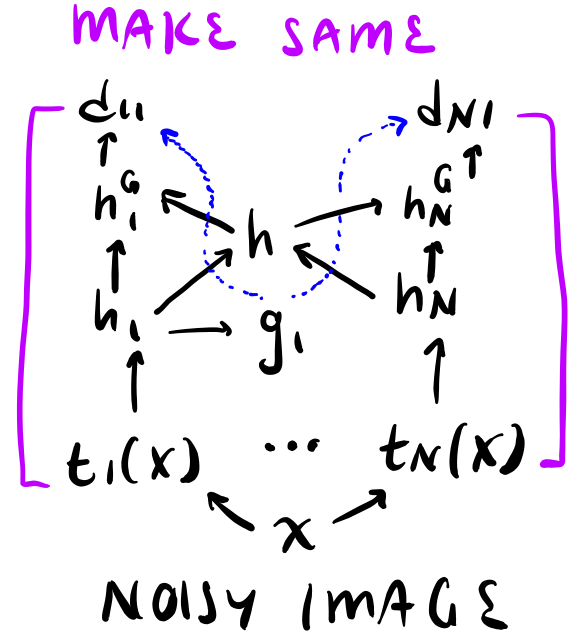 MAKE SAME
d11 dN1
h1^G hN^G
h
h1 hN
g1
t1(x) ... tN(x)
x
NOISY IMAGE